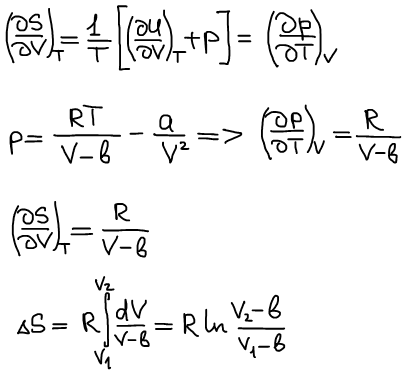 (∂S/∂V)_T = 1/T [(∂U/∂V)_T + P] = (∂P/∂T)_V
P = RT/(V-в) - a/V² => (∂P/∂T)_V = R/(V-в)
(∂S/∂V)_T = R/(V-в)
ΔS = R ∫_{V₁}^{V₂} dV/(V-в) = R ln (V₂-в)/(V₁-в)